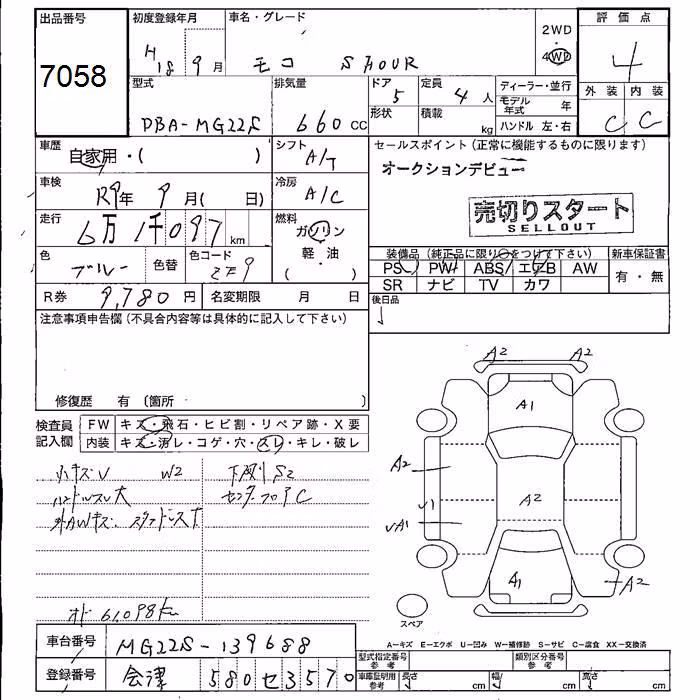 出品番号
7058
初度登録年月
H18 9月
車名・グレード
モコ S FOUR
2WD
・
4WD
評価点
4
外装 内装
C C
型式
DBA-MG22S
排気量
660 cc
ドア 5
形状
定員 4人
積載 kg
ディーラー・並行
モデル年式 年
ハンドル 左・右
車歴
自家用・( )
シフト
A/T
セールスポイント (正常に機能するものに限ります)
オークションデビュー
売切りスタート
SELLOUT
車検
R9年 9月( 日)
冷房
A/C
走行
6万1千097 km
燃料
ガソリン
軽・油
( )
色
ブルー
色替
色コード
ZF9
装備品 (純正品に限り○をつけて下さい)
PS PW ABS エアB AW
SR ナビ TV カワ
新車保証書
有・無
R券 9,780円
名変期限 月 日
後日品
注意事項申告欄 (不具合内容等は具体的に記入して下さい)
修復歴 有 (箇所 )
検査員記入欄
FW キズ・飛石・ヒビ割・リペア跡・X要
内装 キズ・汚レ・コゲ・穴・スレ・キレ・破レ
小キズU W2
下廻りS2
ハンドルスレ大
センターフロアC
外AWキズ スタッドレス
オド 61,098km
A2 A2
A1
A2
U1
A2
UA1
A1
A2
スペア
A-キズ E-エクボ U-凹み W-補修跡 S-サビ C-腐食 XX-交換済
車台番号 MG22S-139688
登録番号 会津 580 セ 3570
型式指定番号 参考
類別区分番号 参考
車庫証明用 参考 長さ cm 幅 cm 高さ cm